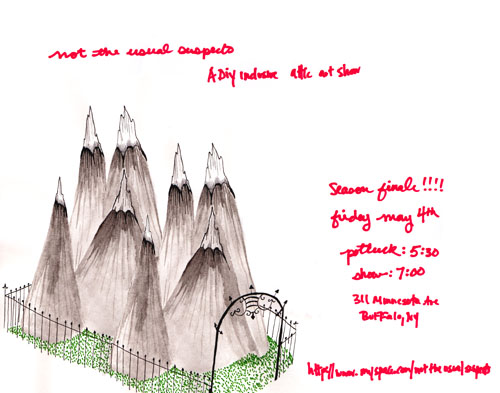 not the usual suspects
A DIY inclusive attic art show
Season finale!!!!
friday may 4th
potluck: 5:30
show: 7:00
311 Minnesota Ave
Buffalo, NY
http://www.myspace.com/not the usual suspects